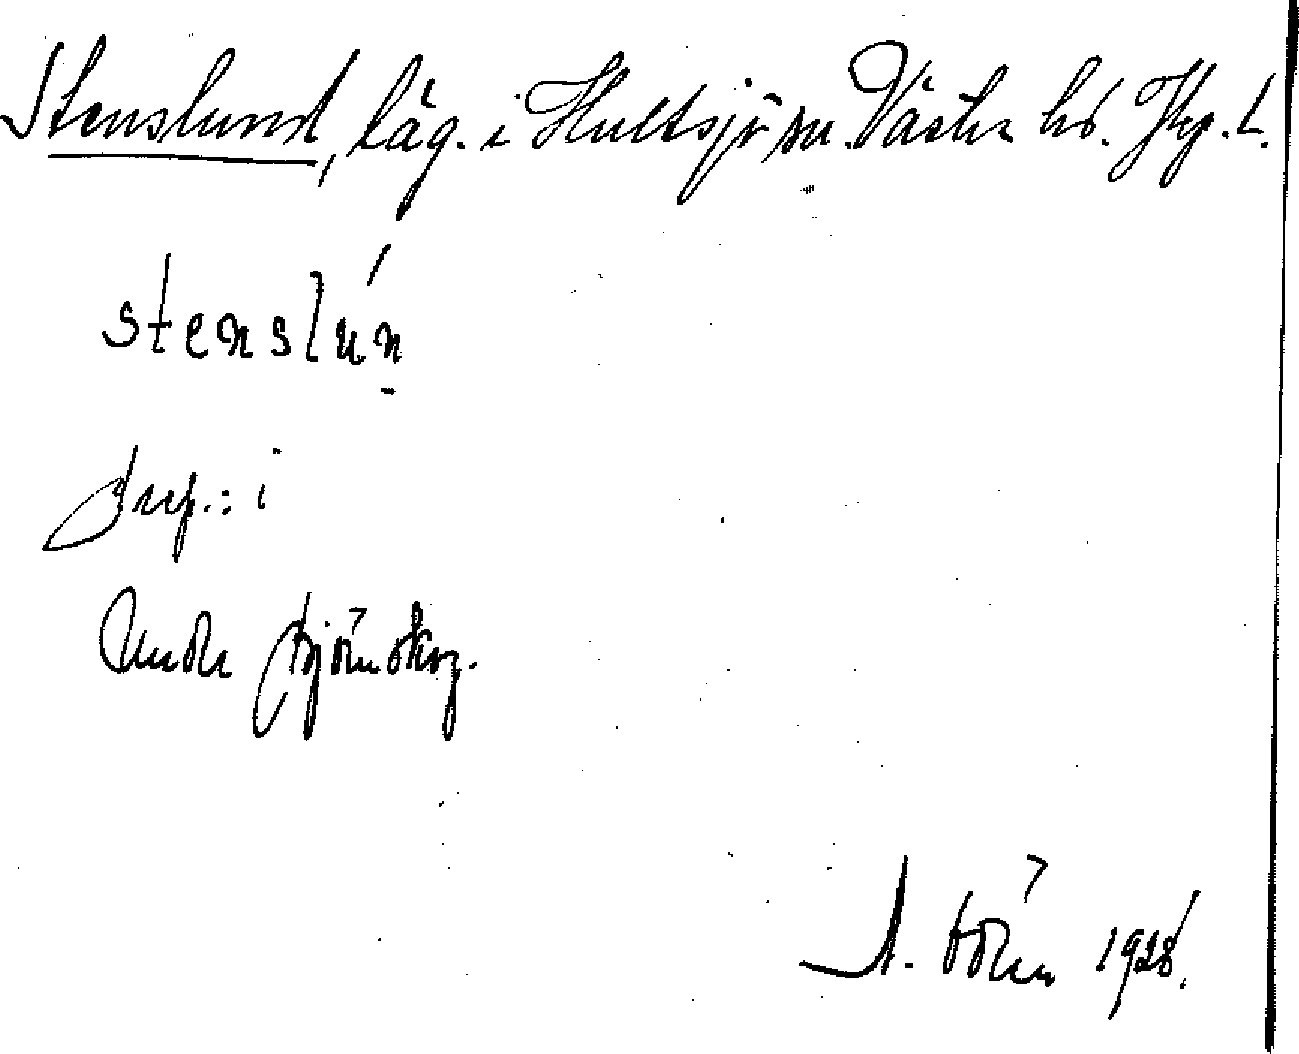 Stenslund, läg. i Hultsjö sn. Västra hd. Jkp. l.
stenslún
prep.: i
Under Björnskog.
1928.